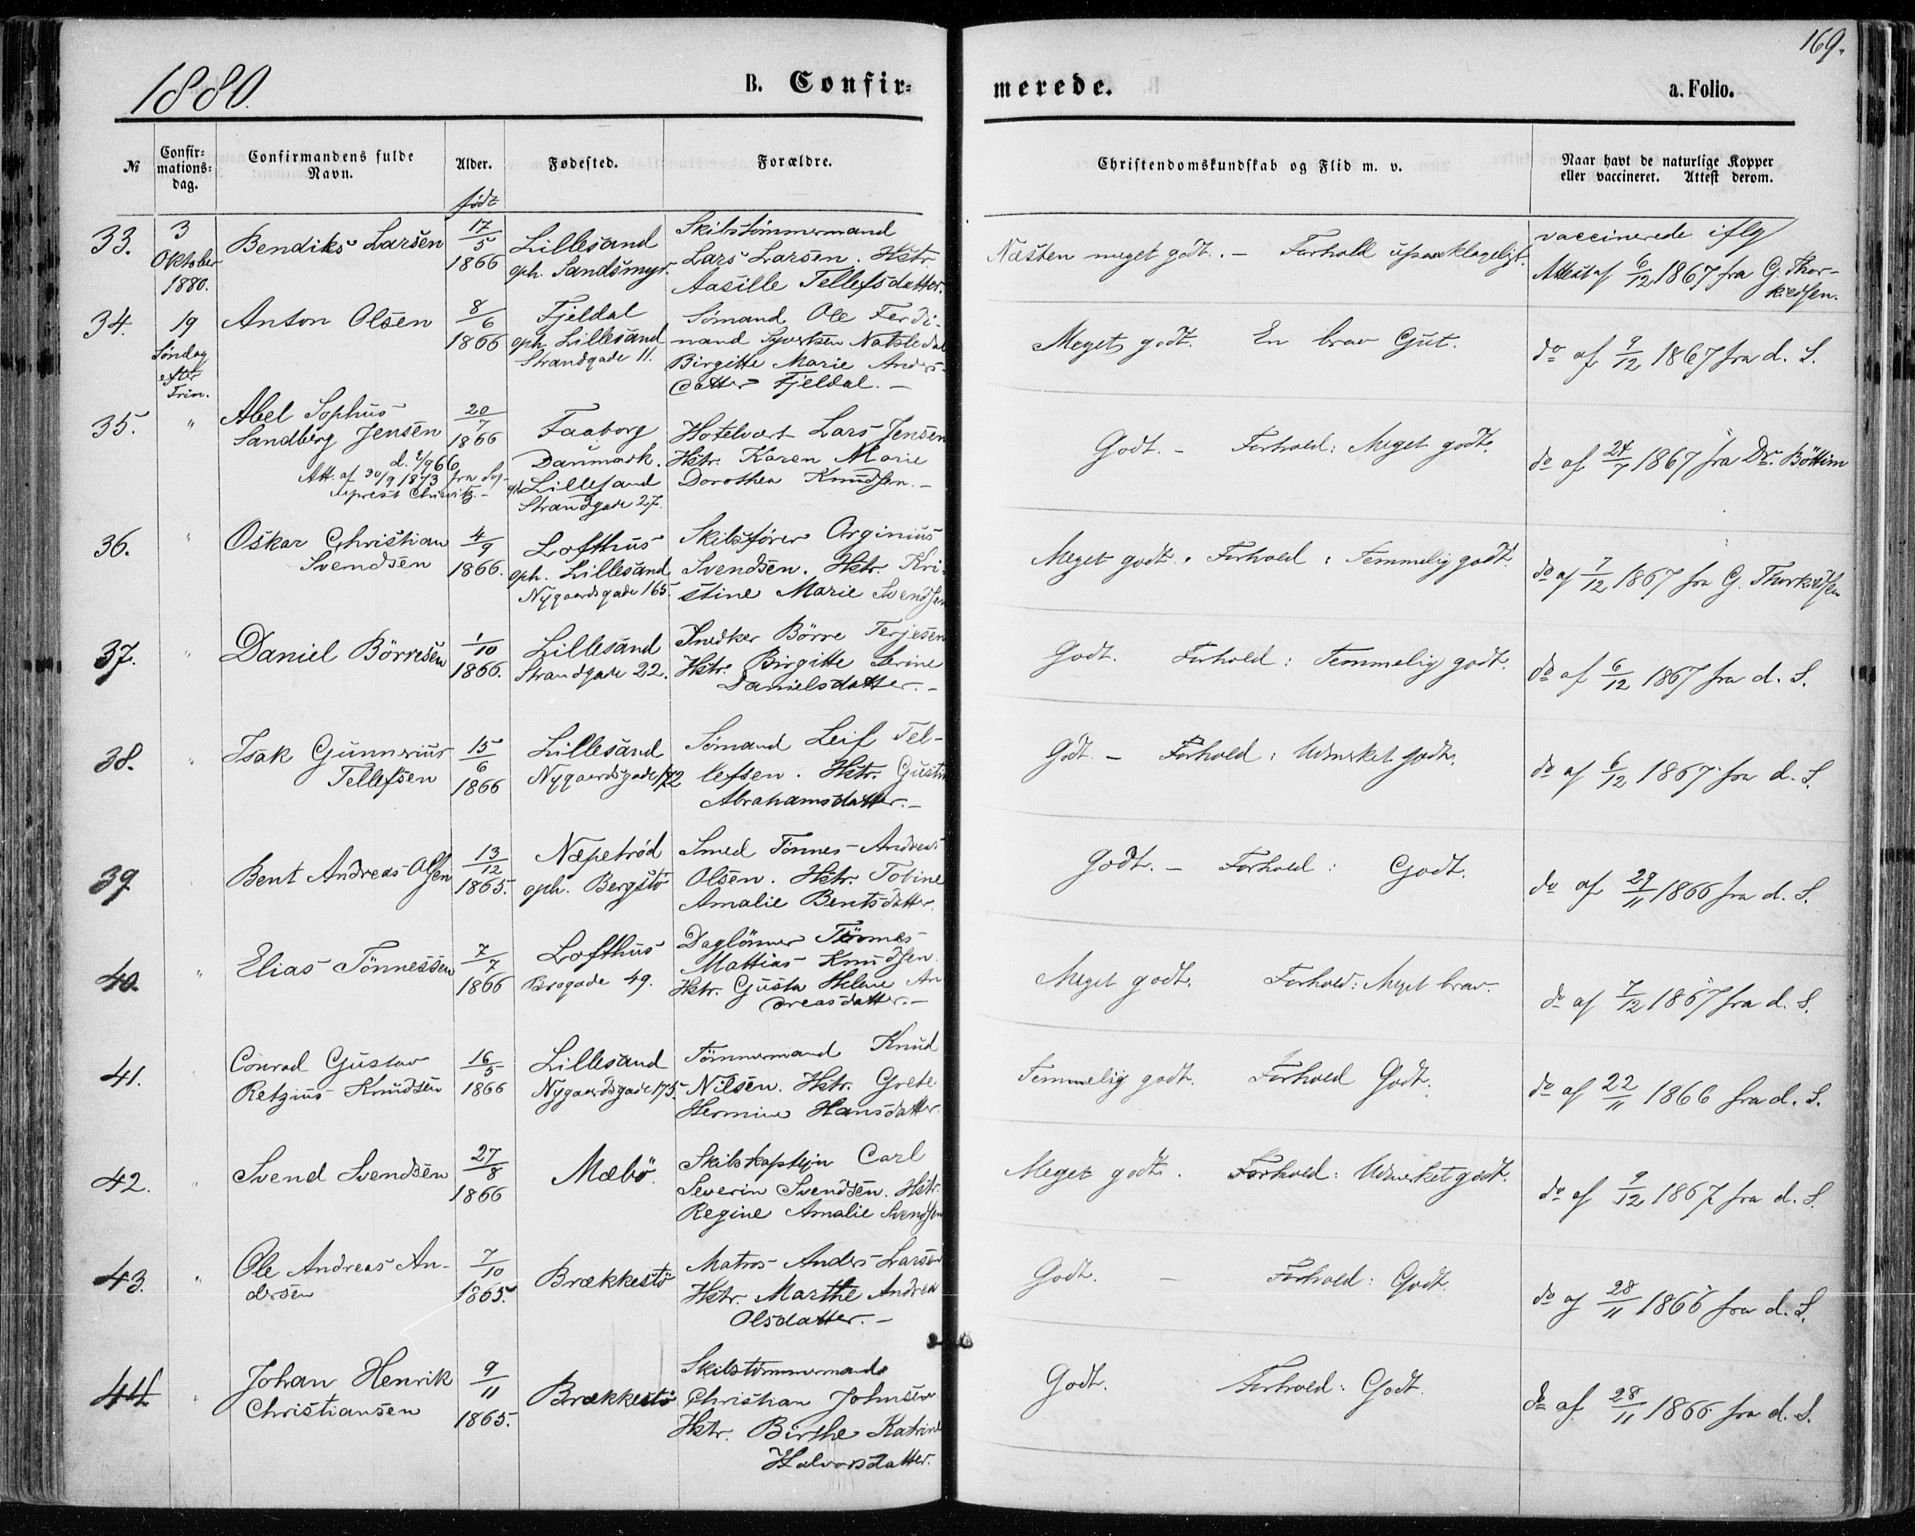 1880.
B. Confir=
merede.
a. Folio.
169.
№
Confir-
mations-
dag.
Confirmandens fulde
Navn.
Alder.
Fødested.
Forældre.
Christendomskundskab og Flid m. v.
Naar havt de naturlige Kopper
eller vaccineret. Attest derom.
født
33.
3
Oktober
1880.
Bendiks Larsen
17/5
1866
Lillesand
oph. Sandsmyr.
Skibstømmermand
Lars Larsen. Hstr
Aasille Tellefsdatter.
Næsten meget godt. - Forhold upaaklageligt.
vaccinerede iflg
Attest af 6/12 1867 fra G. Thor-
kildsen.
34.
19
Søndag
efter
Trin.
Anton Olsen
8/6
1866
Fjeldal
oph. Lillesand
Strandgade 11.
Sømand Ole Ferdi-
nand
Birgitte Marie Anders-
datter Fjeldal. -
Meget godt. En brav Gut.
do af 9/12 1867 fra d. S.
35.
"
Abel Sophus
Sandberg Jensen
d. 2/9 66
Att. af 30/9 1873 fra Sog-
neprest
20/7
1866
Faaborg
Danmark.
Lillesand
Strandgade 27.
Hotelvært Lars Jensen
Hstr. Karen Marie
Dorothea Knudsen. -
Godt. - Forhold: Meget godt.
do af 24/7 1867 fra Dr.
36.
"
Oskar Christian
Svendsen
4/9
1866.
Lofthus
oph. Lillesand
Nygaardsgade 165.
Skibsfører Orginius
Svendsen. Hstr. Kri-
stine Marie Svendsen
Meget godt. Forhold: Temmelig godt.
do af 7/12 1867 fra G. Thorkildsen
37.
"
Daniel Börresen
1/10
1866.
Lillesand
Strandgade 22.
Snedker Börre Terjesen
Hstr. Birgitte Serine
Danielsdatter. -
Godt. Forhold: Temmelig godt.
do af 6/12 1867 fra d. S.
38.
"
Isak Gunnerius
Tellefsen
15/6
1866
Lillesand
Nygaardsgade 172
Sømand Leif Tel-
lefsen. Hstr. Gustin
Abrahamsdatter. -
Godt. - Forhold: Udmerket godt.
do af 6/12 1867 fra d. S.
39.
Bent Andreas Olsen
13/12
1865.
Næpetröd
oph. Bergstö
Smed Tönnes Andreas
Olsen. Hstr. Tobine
Amalie Bentsdatter.
Godt. - Forhold: Godt.
do af 29/11 1866 fra d. S.
40.
"
Elias Tönnessen
7/7
1866
Lofthus
Brogade 49.
Daglönner Tönnes
Mattias Knudsen.
Hstr. Gusta Helene An
dreasdatter. -
Meget godt. Forhold: Meget brav.
do af 7/12 1867 fra d. S.
41.
Conrad Gustav
Retzius Knudsen
16/5
1866
Lillesand
Nygaardsgade 175.
Tömmermand Knud
Nilsen. Hstr. Grete
Hermine Hansdatter.
Temmelig godt. Forhold Godt.
do af 22/11 1866 fra d. S.
42.
"
Svend Svendsen
27/8
1866
Mæbö.
Skibskaptejn Carl
Severin Svendsen. Hstr.
Regine Amalie Svendsen
Meget godt. Forhold: Udmerket godt.
do af 9/12 1867 fra d. S.
43.
"
Ole Andreas An-
dersen
7/10
1865.
Brækkestö
Matros Anders Larsen
Hstr. Marthe Andrea
Olsdatter. -
Godt. - Forhold: Godt.
do af 28/11 1866 fra d. S.
44.
"
Johan Henrik
Christiansen
9/11
1865.
Brækkestö
Skibstömmermand
Christian Johnsen
Hstr. Birthe Katrine
Halvorsdatter.
Godt. Forhold: Godt.
do af 28/11 1866 fra d. S.